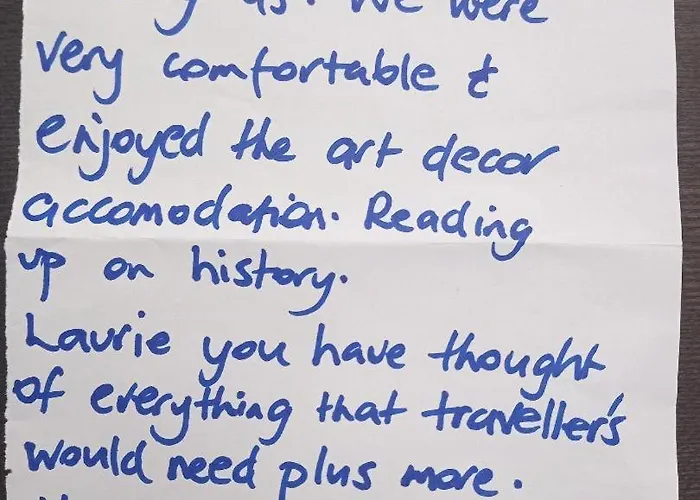 us. We were
very comfortable &
enjoyed the art decor
accomodation. Reading
up on history.
Laurie you have thought
of everything that traveller's
would need plus more.